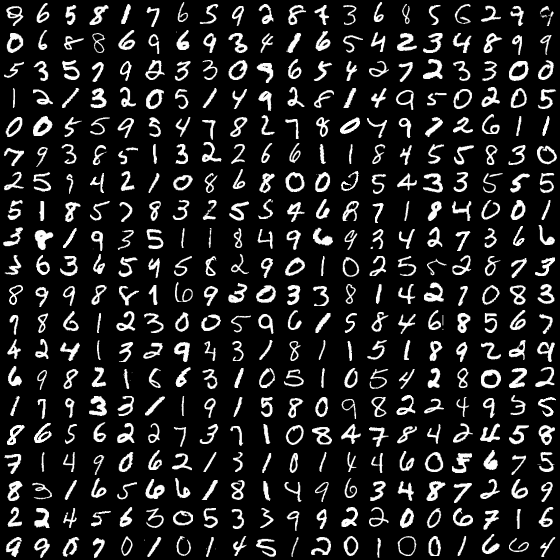 9 6 5 8 1 7 6 5 9 2 8 7 3 6 8 5 6 2 9 9
0 6 8 8 6 9 6 9 3 4 1 6 5 4 2 3 4 8 9 9
5 3 5 7 9 2 3 3 0 9 6 5 4 2 7 2 3 3 0 0
1 2 1 3 2 0 5 1 4 9 2 8 1 4 9 5 0 2 0 5
0 0 5 5 9 3 4 7 8 2 7 8 0 4 9 7 2 6 1 1
7 9 3 8 5 1 3 2 2 6 6 1 1 8 4 5 5 8 3 0
2 5 9 4 2 1 0 8 6 8 0 0 2 5 4 3 3 5 5 5
5 1 8 5 7 8 3 2 5 5 4 6 8 7 1 8 4 0 0 1
3 8 1 9 3 5 1 1 8 4 9 6 9 3 4 2 7 3 6 6
3 6 3 6 5 4 5 8 2 9 0 1 0 2 5 5 2 8 7 3
8 9 9 8 8 1 6 9 3 0 3 3 8 1 4 2 7 0 8 3
9 8 6 1 2 3 0 0 5 9 6 1 5 8 4 6 8 5 6 7
4 2 4 1 3 2 9 4 3 1 8 1 1 5 1 8 9 2 2 9
6 9 8 2 1 6 6 3 1 0 5 1 0 5 4 2 8 0 2 2
1 7 9 3 3 1 1 9 1 5 8 0 9 8 2 2 4 9 3 5
8 6 5 6 2 2 7 3 7 1 0 8 4 7 8 4 2 4 5 8
7 1 4 9 0 6 2 1 3 1 0 1 4 4 6 0 5 6 7 5
8 3 1 6 5 6 6 1 8 1 4 9 6 3 4 8 7 2 6 9
2 2 4 5 6 3 0 5 3 3 9 9 2 2 0 0 6 7 1 6
9 9 0 7 0 1 0 1 4 5 1 2 0 1 0 0 1 6 6 4